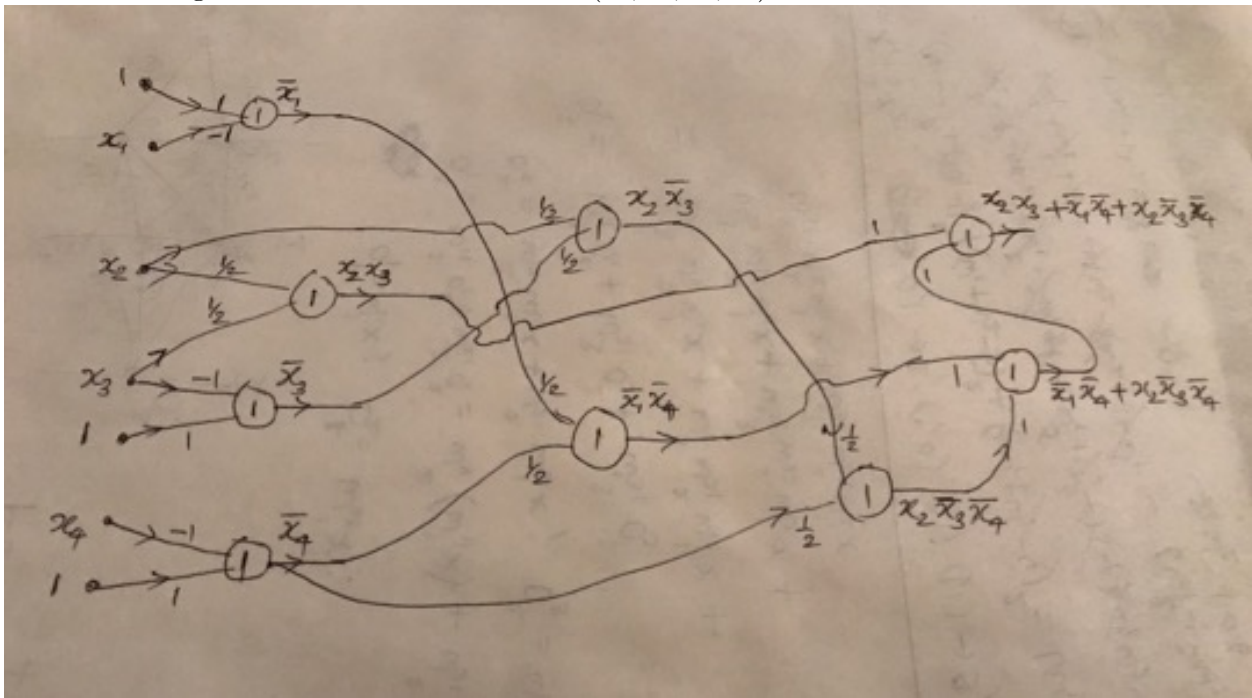 1
1
x̄₁
x₁
-1
1
x₂ x̄₃
½
½
x₂
½
x₂ x₃
1
½
1
1
x₂x₃ + x̄₁x̄₄ + x₂x̄₃x̄₄
1
1
x₃
-1
x̄₃
1
1
1
½
x̄₁ x̄₄
1
½
1
1
x̄₁x̄₄ + x₂x̄₃x̄₄
1
½
1
x₂ x̄₃ x̄₄
½
x₄
-1
x̄₄
1
1
1